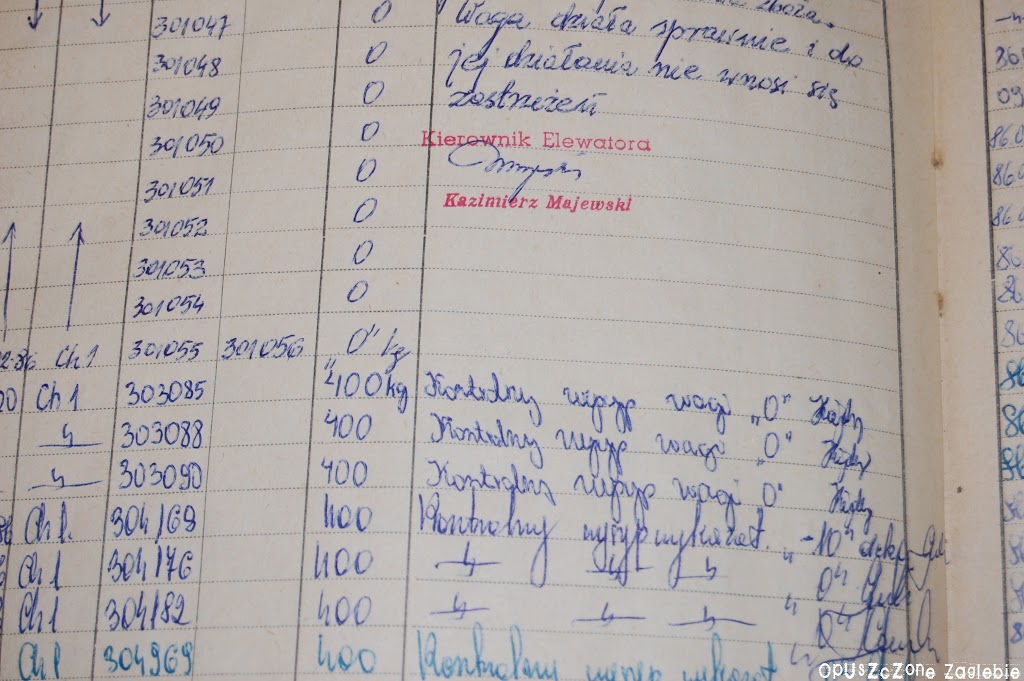 zboża.
301047 0 Waga działa sprawnie i do
301048 0 jej działania nie wnosi się
301049 0 zastrzeżeń
301050 0 Kierownik Elewatora
301051 0
301052 0 Kazimierz Majewski
301053 0
301054 0
2.86 Ch 1 301055 301056 „0" kg
Ch 1 303085 400 kg Kontrolny wysyp wagi „0"
303088 400 Kontrolny wysyp wagi „0"
303090 400 Kontrolny wysyp wagi „0"
Ch 1. 304169 400 Kontrolny wysyp wykazał. „-10"
Ch 1 304176 400 „0"
Ch 1 304182 400 „0"
Ch 1 304969 400 Kontrolny wysyp wykazał
Opuszczone Zagłębie